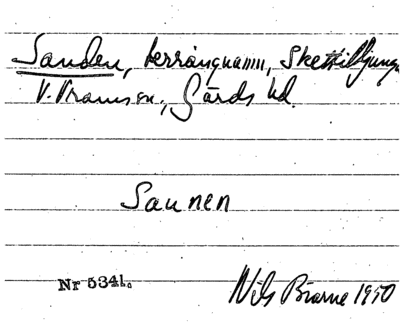 Sanden, terrängnamn, Skettiljunga
V. Vramsn., Gärds hd.
Saunen
Nr 5341.
Nils Bjarne 1950